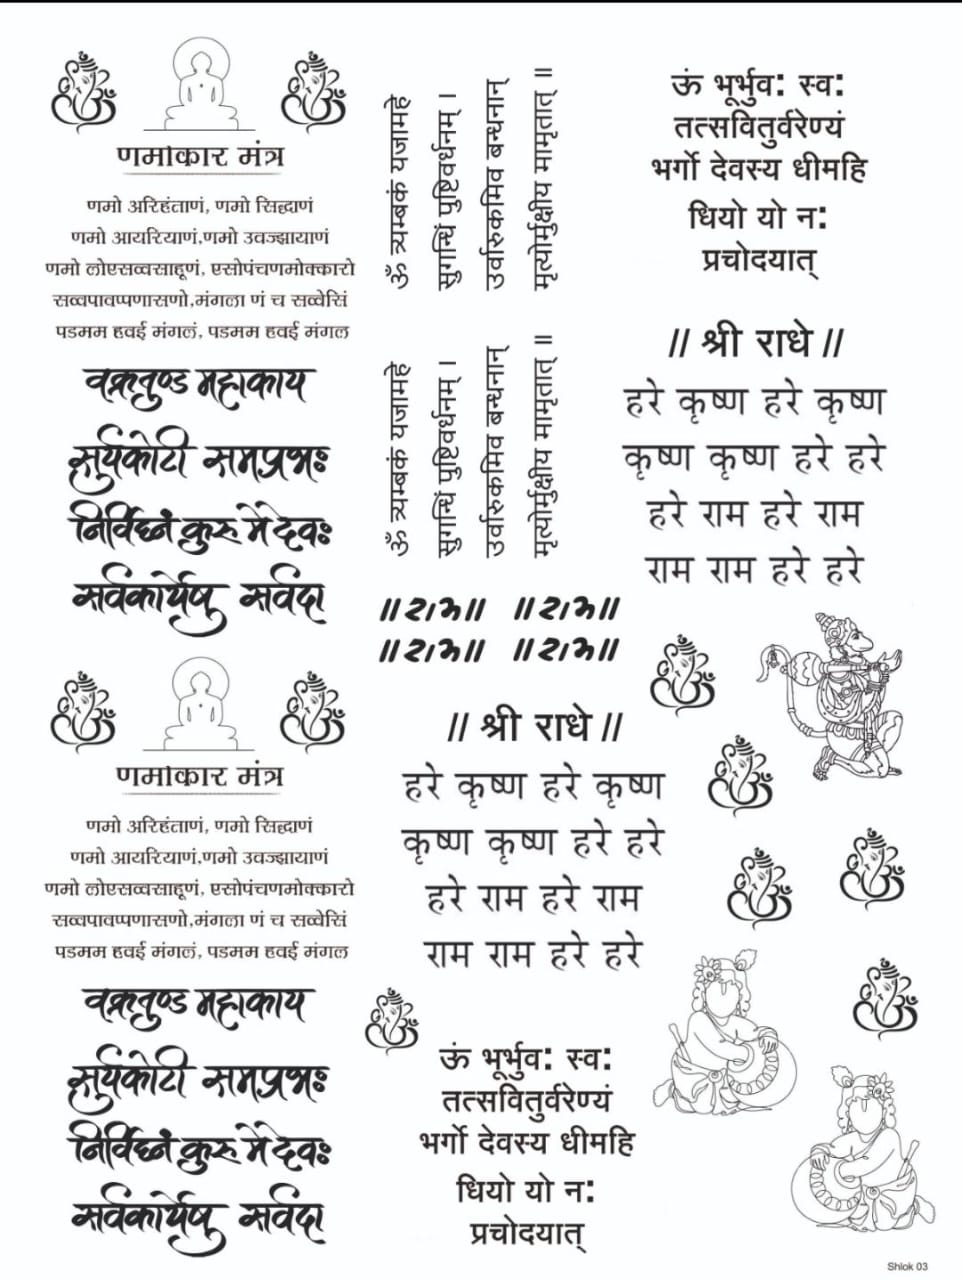 णमोकार मंत्र
णमो अरिहंताणं, णमो सिद्धाणं
णमो आयरियाणं,णमो उवज्झायाणं
णमो लोएसव्वसाहूणं, एसोपंचणमोक्कारो
सव्वपावप्पणासणो,मंगला णं च सव्वेसिं
पडमम हवई मंगलं, पडमम हवई मंगल
वक्रतुण्ड महाकाय
सुर्यकोटी समप्रभः
निर्विघ्नं कुरु मे देवः
सर्वकार्येषु सर्वदा
ॐ त्र्यम्बकं यजामहे
सुगन्धिं पुष्टिवर्धनम् ।
उर्वारुकमिव बन्धनान्
मृत्योर्मुक्षीय मामृतात् ॥
ऊं भूर्भुव: स्व:
तत्सवितुर्वरेण्यं
भर्गो देवस्य धीमहि
धियो यो न:
प्रचोदयात्
// श्री राधे //
हरे कृष्ण हरे कृष्ण
कृष्ण कृष्ण हरे हरे
हरे राम हरे राम
राम राम हरे हरे
ॐ त्र्यम्बकं यजामहे
सुगन्धिं पुष्टिवर्धनम् ।
उर्वारुकमिव बन्धनान्
मृत्योर्मुक्षीय मामृतात् ॥
॥राम॥ ॥राम॥
॥राम॥ ॥राम॥
णमोकार मंत्र
णमो अरिहंताणं, णमो सिद्धाणं
णमो आयरियाणं,णमो उवज्झायाणं
णमो लोएसव्वसाहूणं, एसोपंचणमोक्कारो
सव्वपावप्पणासणो,मंगला णं च सव्वेसिं
पडमम हवई मंगलं, पडमम हवई मंगल
वक्रतुण्ड महाकाय
सुर्यकोटी समप्रभः
निर्विघ्नं कुरु मे देवः
सर्वकार्येषु सर्वदा
// श्री राधे //
हरे कृष्ण हरे कृष्ण
कृष्ण कृष्ण हरे हरे
हरे राम हरे राम
राम राम हरे हरे
ऊं भूर्भुव: स्व:
तत्सवितुर्वरेण्यं
भर्गो देवस्य धीमहि
धियो यो न:
प्रचोदयात्
Shlok 03